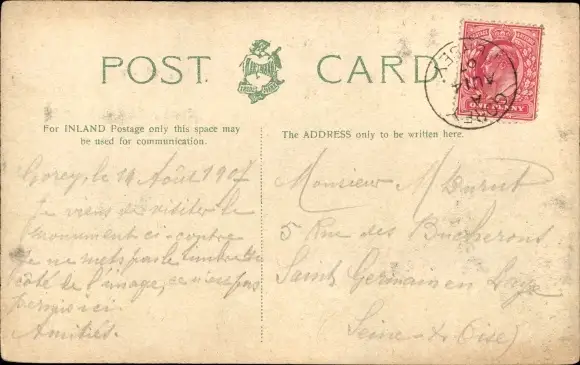 POST CARD
ONE PENNY
For INLAND Postage only this space may
be used for communication.
The ADDRESS only to be written here.
Gorey, le 14 Août 1907
Je viens de visiter le
monument ci-contre
Je ne mets pas le timbre du
côté de l'image, ce n'est pas
permis ici.
Amitiés.
Monsieur M Durut
5 Rue des Bûcherons
Saint Germain en Laye
(Seine & Oise)